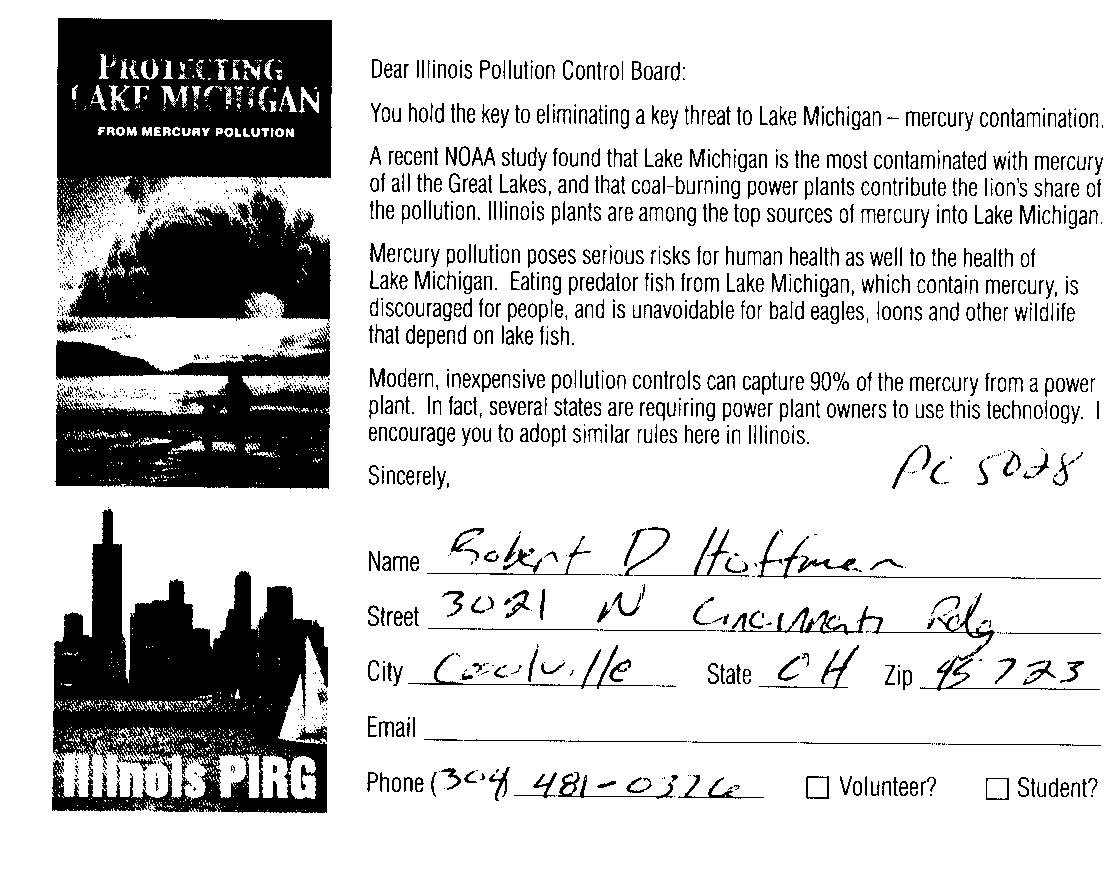 PROTECTING
LAKE MICHIGAN
FROM MERCURY POLLUTION
Dear Illinois Pollution Control Board:
You hold the key to eliminating a key threat to Lake Michigan – mercury contamination.
A recent NOAA study found that Lake Michigan is the most contaminated with mercury
of all the Great Lakes, and that coal-burning power plants contribute the lion's share of
the pollution. Illinois plants are among the top sources of mercury into Lake Michigan.
Mercury pollution poses serious risks for human health as well to the health of
Lake Michigan. Eating predator fish from Lake Michigan, which contain mercury, is
discouraged for people, and is unavoidable for bald eagles, loons and other wildlife
that depend on lake fish.
Modern, inexpensive pollution controls can capture 90% of the mercury from a power
plant. In fact, several states are requiring power plant owners to use this technology. I
encourage you to adopt similar rules here in Illinois.
Sincerely,
PC 5028
Name Robert D Hoffman
Street 3021 N Cincinnati Rdg
City Coolville State OH Zip 45723
Email
Phone (304) 481-0326 Volunteer? Student?
Illinois PIRG